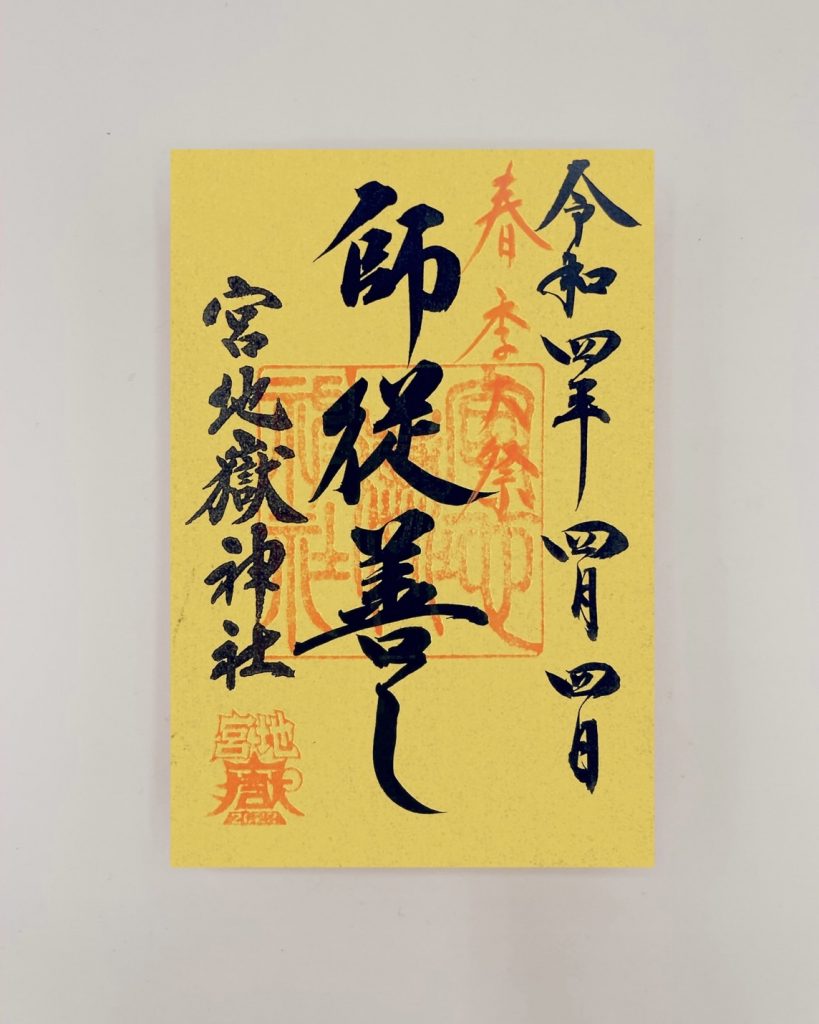 令和四年 四月 四日
春季大祭
師従善し
宮地嶽神社
宮地
嶽